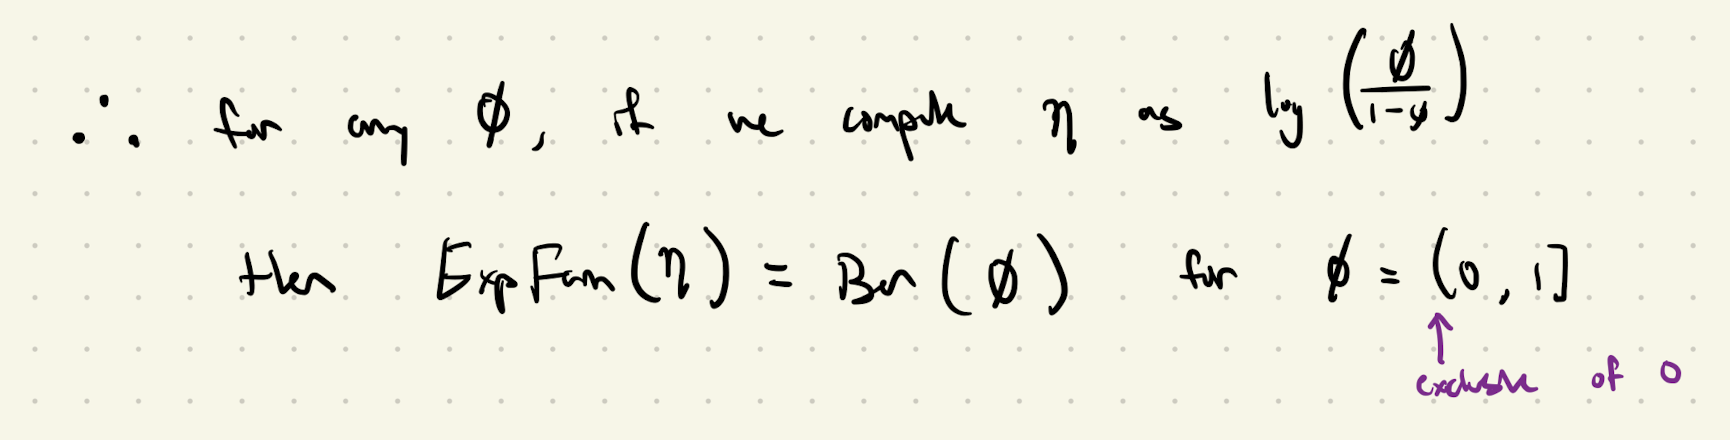 ∴ for any ϕ, if we compute η as log(ϕ/(1-ϕ))
then ExpFam(η) = Ber(ϕ) for ϕ = (0, 1]
↑
exclusive of 0